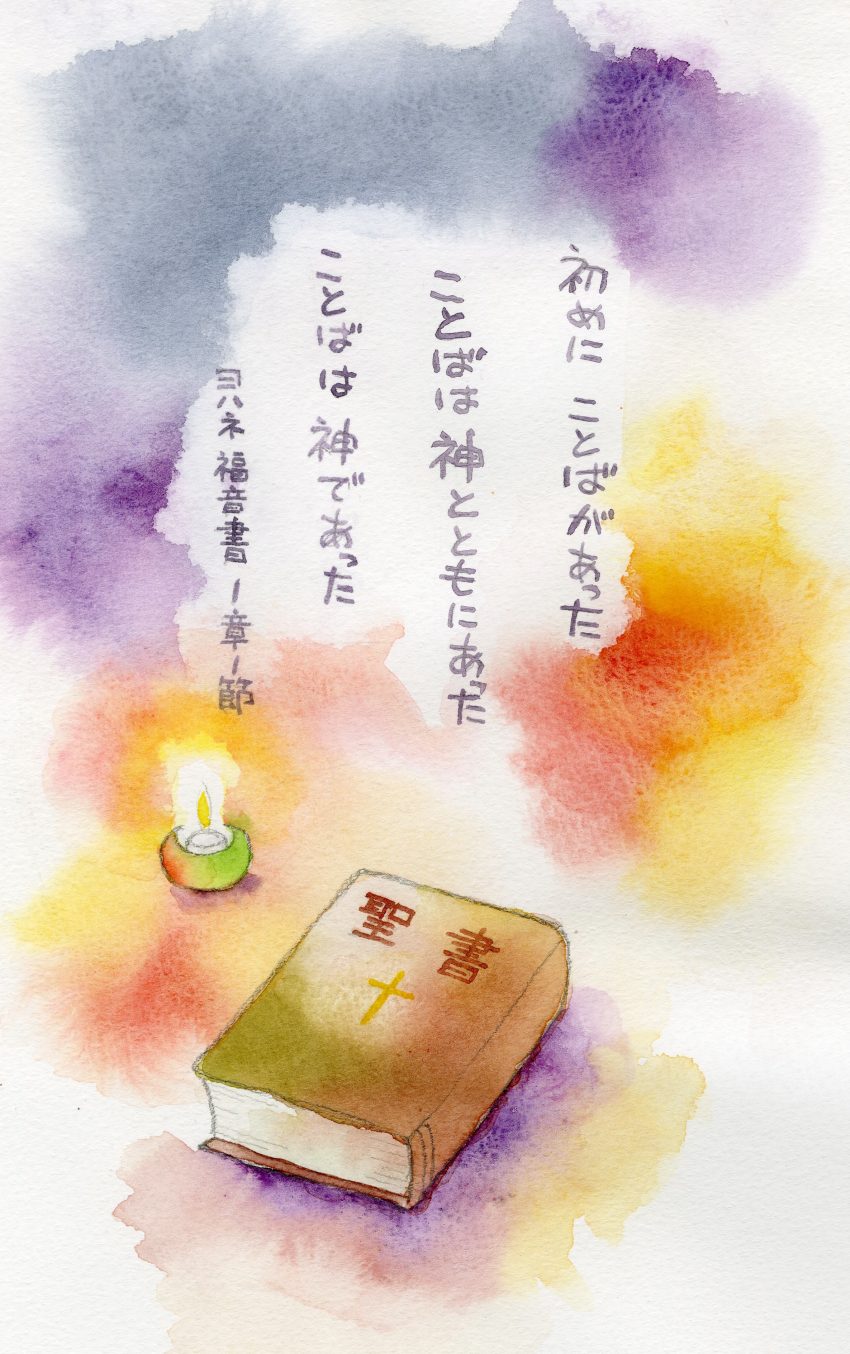 初めに ことばがあった
ことばは神とともにあった
ことばは 神であった
ヨハネ 福音書 1章1節
聖書